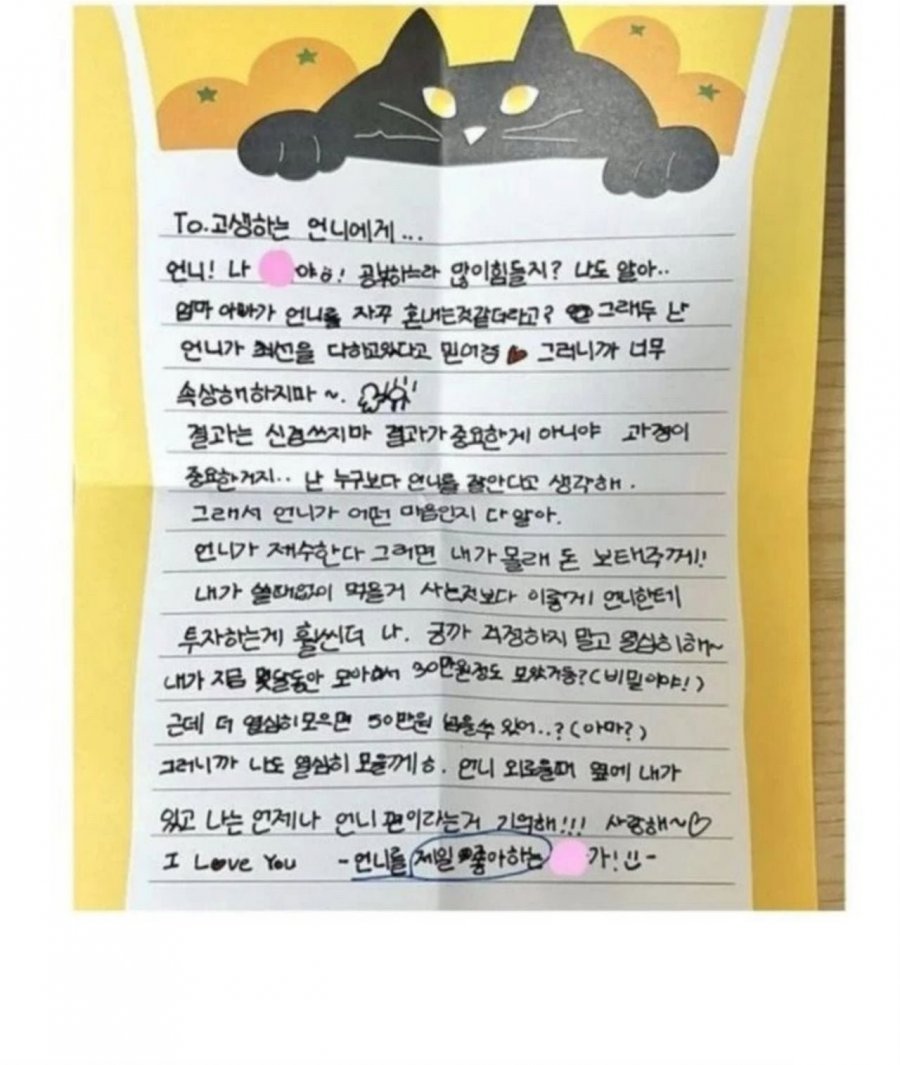 To.고생하는 언니에게...
언니! 나 야ㅎ! 공부하느라 많이힘들지? 나도 알아..
엄마 아빠가 언니를 자꾸 혼내는것같더라고? 그래두 난
언니가 최선을 다하고있다고 믿어경 그러니까 너무
속상해하지마~.
결과는 신경쓰지마 결과가 중요한게 아니야 과정이
중요한거지.. 난 누구보다 언니를 잘안다고 생각해.
그래서 언니가 어떤 마음인지 다 알아.
언니가 재수한다 그러면 내가 몰래 돈 보태주께!
내가 쓸때없이 먹을거 사는것보다 이렇게 언니한테
투자하는게 훨씬더 나. 긍까 걱정하지 말고 열심히해~
내가 지금 몇달동안 모아놔서 30만원정도 모았거등?(비밀이야!)
근데 더 열심히모으면 50만원 넘을쑤 있어..?(아마?)
그러니까 나도 열심히 모을께ㅎ. 언니 외로울때 옆에 내가
있고 나는 언제나 언니 편이라는거 기억해!!! 사랑해~♡
I Love You -언니를 제일 좋아하는 가!-